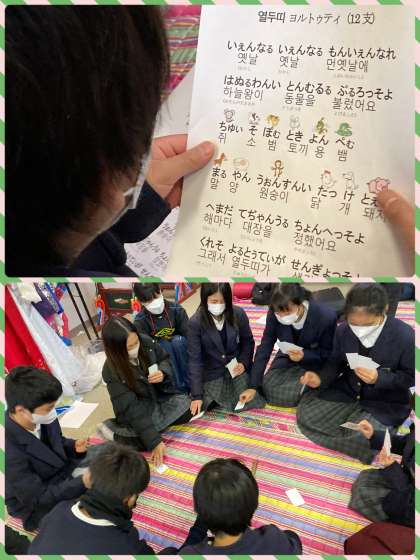 열두띠 ヨルトゥティ (12支)
いぇんなる いぇんなる もんいぇんなれ
옛날 옛날 먼옛날에
はぬるわんい とんむるる ぶるろっそよ
하늘왕이 동물을 불렀어요
ちゅい そ ぽむ とき よん ぺむ
쥐 소 범 토끼 용 뱀
まる やん うぉんすんい たっ け とぇ
말 양 원숭이 닭 개 돼지
へまだ てぢゃんうる ちょんへっそよ
해마다 대장을 정했어요
くれそ よるとぅてぃが せんぎょっそ
그래서 열두띠가